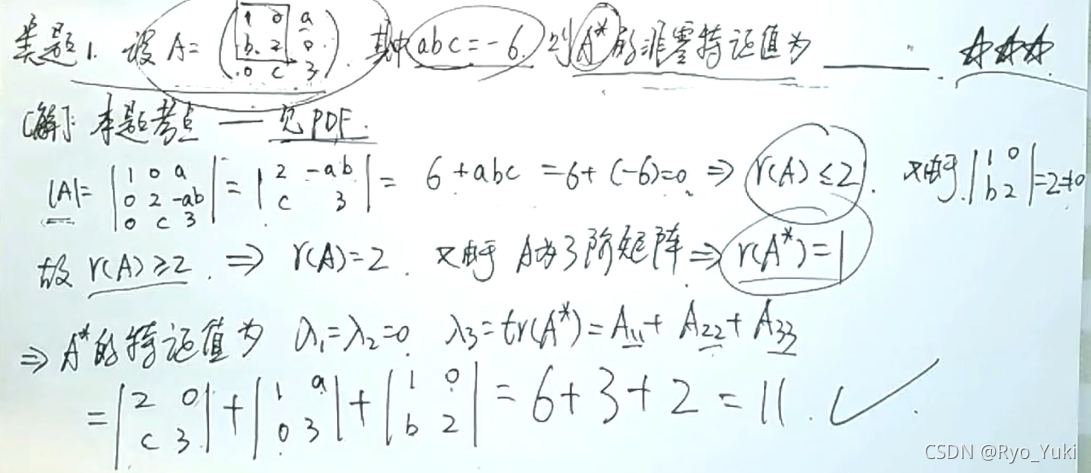 类题1. 设 A= (1 0 a; b 2 0; 0 c 3). 其中 abc=-6. 则 A* 的非零特征值为 ______. ☆☆☆
[解]: 本题考点 —— 见PDF.
|A|= |1 0 a; 0 2 -ab; 0 c 3| = |2 -ab; c 3| = 6+abc =6+(-6)=0 ⇒ r(A)≤2. 又由于 |1 0; b 2|=2≠0
故 r(A)≥2. ⇒ r(A)=2. 又由于 A为3阶矩阵 ⇒ r(A*)=1
⇒ A*的特征值为 λ₁=λ₂=0 λ₃=tr(A*)=A₁₁+A₂₂+A₃₃
= |2 0; c 3| + |1 a; 0 3| + |1 0; b 2| = 6+3+2 = 11. ✓.
CSDN @Ryo_Yuki